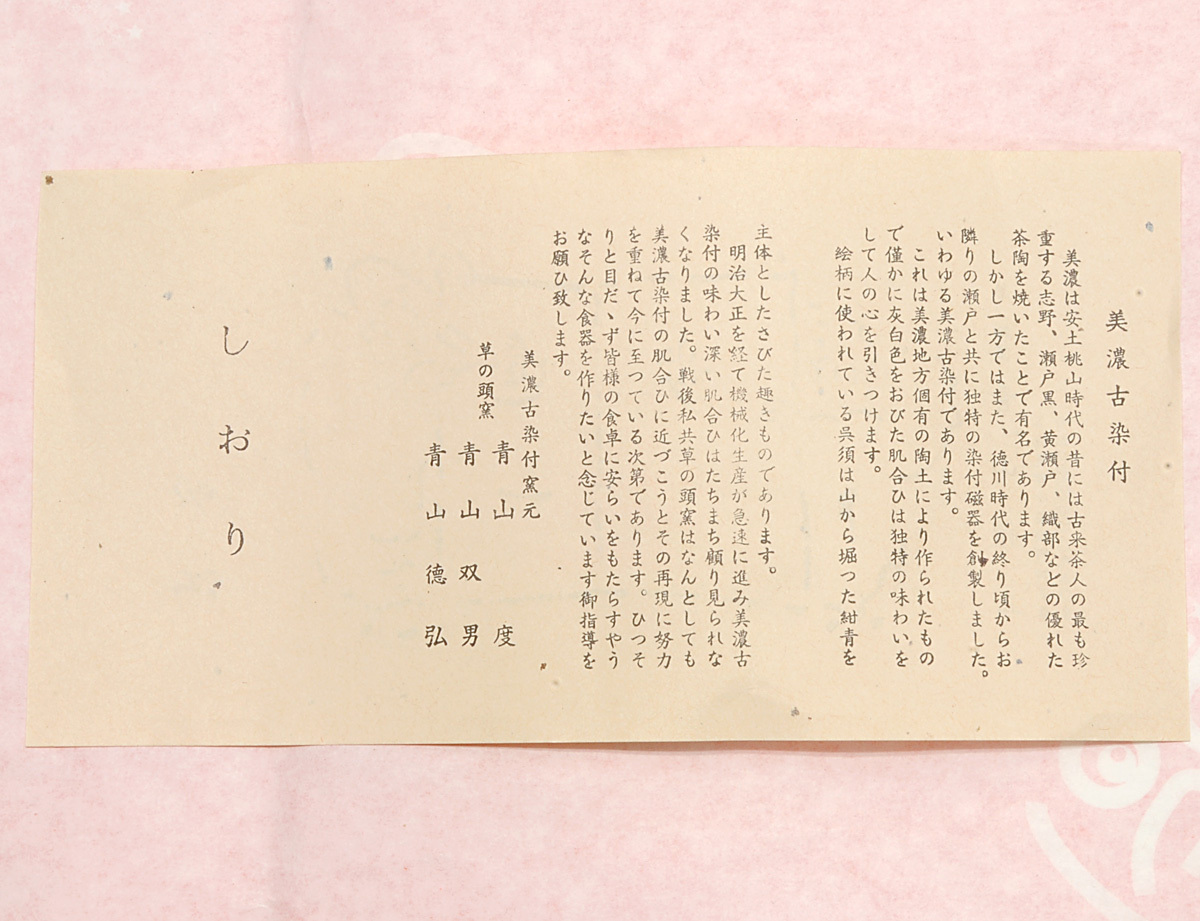 美濃古染付
美濃は安土桃山時代の昔には古来茶人の最も珍
重する志野、瀬戸黒、黄瀬戸、織部などの優れた
茶陶を焼いたことで有名であります。
しかし一方ではまた、徳川時代の終り頃からお
隣りの瀬戸と共に独特の染付磁器を創製しました。
いわゆる美濃古染付であります。
これは美濃地方個有の陶土により作られたもの
で僅かに灰白色をおびた肌合ひは独特の味わいを
して人の心を引きつけます。
絵柄に使われている呉須は山から堀つた紺青を
主体としたさびた趣きものであります。
明治大正を経て機械化生産が急速に進み美濃古
染付の味わい深い肌合ひはたちまち顧り見られな
くなりました。戦後私共草の頭窯はなんとしても
美濃古染付の肌合ひに近づこうとその再現に努力
を重ねて今に至つている次第であります。ひつそ
りと目だゝず皆様の食卓に安らいをもたらすやう
なそんな食器を作りたいと念じています御指導を
お願ひ致します。
美濃古染付窯元
草の頭窯
青山　度
青山双男
青山徳弘
しおり